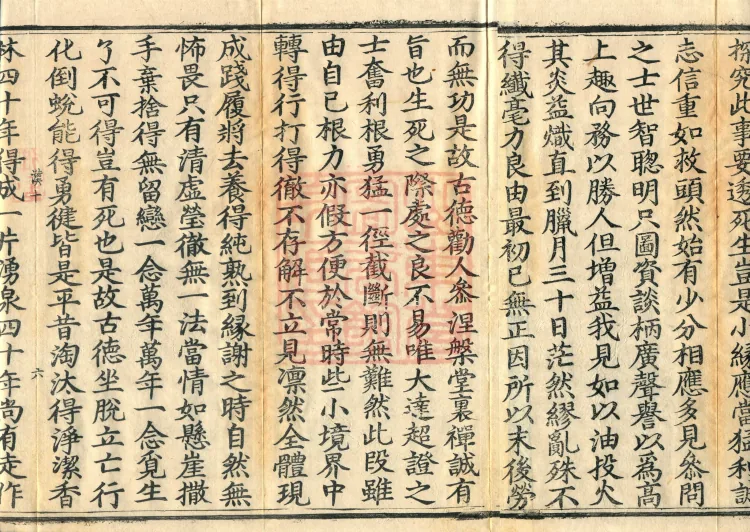 探究此事要透死生豈是小緣應當猛利誠
志信重如救頭然始有少分相應多見叅問
之士世智聰明只圖資談柄廣聲譽以爲高
上趣向務以勝人但增益我見如以油投火
其炎益熾直到臘月三十日茫然繆亂殊不
得纎毫力良由最初已無正因所以末後勞
而無功是故古德勸人叅涅槃堂裏禪誠有
旨也生死之際處之良不易唯大達超證之
士奮利根勇猛一徑截斷則無難然此段雖
由自己根力亦假方便於常時些小境界中
轉得行打得徹不存解不立見凛然全體現
成踐履將去養得純熟到緣謝之時自然無
怖畏只有清虛瑩徹無一法當情如懸崖撒
手棄捨得無留戀一念萬年萬年一念覓生
了不可得豈有死也是故古德坐脫立亡行
化倒蛻能得勇徤皆是平昔淘汰得淨潔香
林四十年得成一片湧泉四十年尚有走作
六